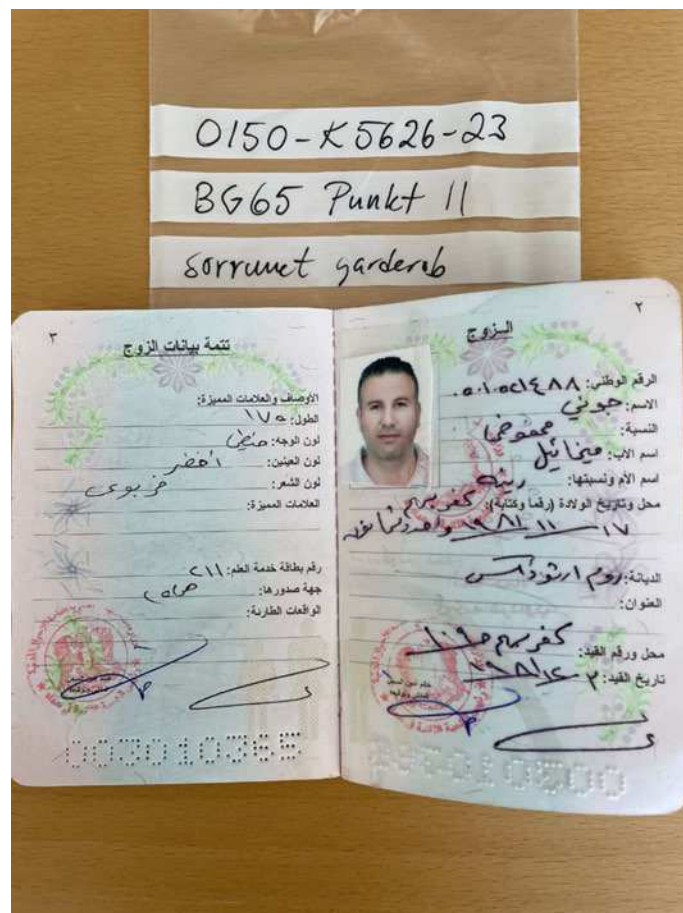 0150-K5626-23
BG65 Punkt 11
sorrumet garderob
٢
الـزوج
الرقم الوطني:
الاسم: جوني
النسبة: محفوض
اسم الاب: ميخائيل
اسم الأم ونسبتها: رينه
محل وتاريخ الولادة (رقما وكتابة): كفربهم
١٧ ١١ ١٩٨١ واحد وثمانون
الديانة: روم ارثوذكس
العنوان:
محل ورقم القيد: كفربهم
تاريخ القيد:
٣
تتمة بيانات الزوج
الأوصاف والعلامات المميزة:
الطول: ١٧٥
لون الوجه: حنطي
لون العينين: أخضر
لون الشعر: خرنوبي
العلامات المميزة:
رقم بطاقة خدمة العلم: ٢١١
جهة صدورها: حماه
الواقعات الطارئة:
003010365